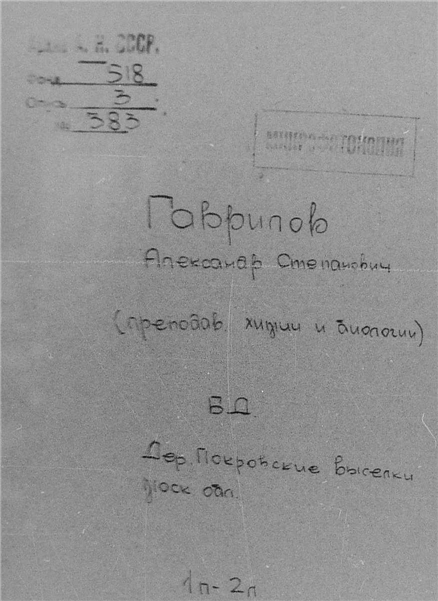 Архив А. Н. СССР.
Фонд 518
Опись 3
№ 383
МИКРОФОТОКОПИЯ
Гаврилов
Александр Степанович
(преподав. химии и биологии)
БД.
Дер. Покровские выселки
Моск обл.
1п - 2п